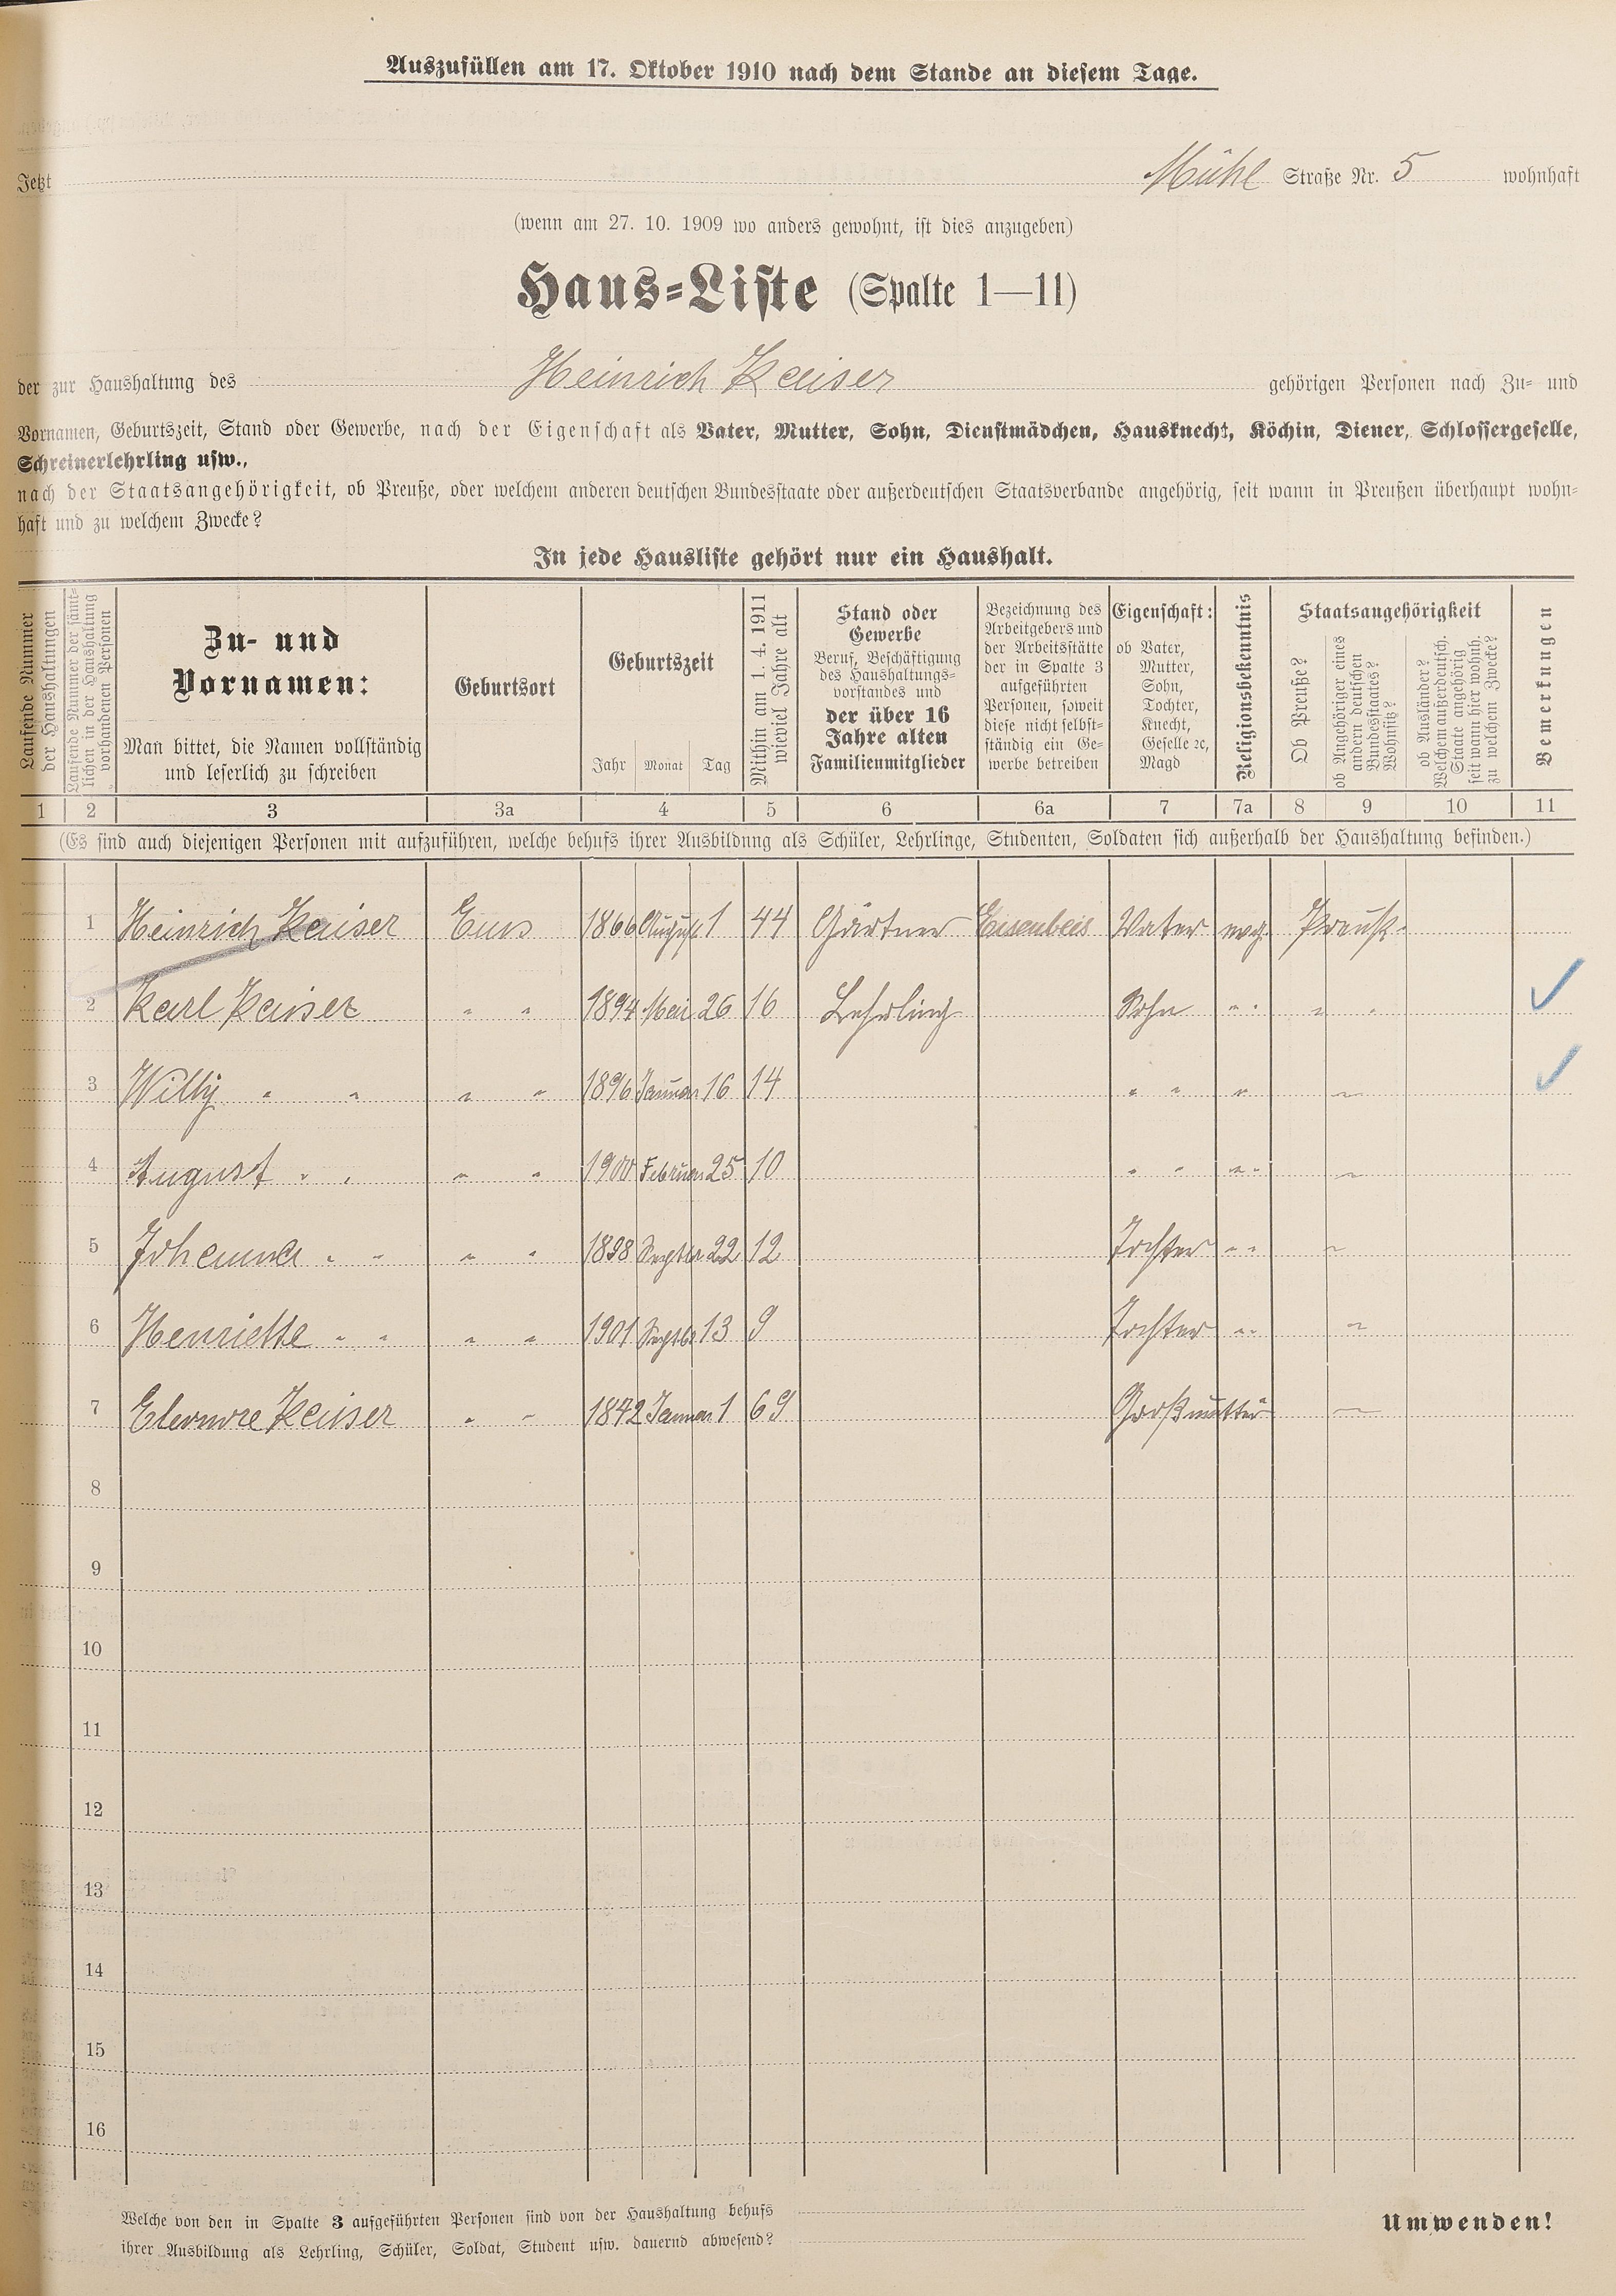 Auszufüllen am 17. Oktober 1910 nach dem Stande an diesem Tage.
Jetzt Mühl Straße Nr. 5 wohnhaft
(wenn am 27. 10. 1909 wo anders gewohnt, ist dies anzugeben)
Haus-Liste (Spalte 1—11)
der zur Haushaltung des Heinrich Kaiser gehörigen Personen nach Zu- und
Vornamen, Geburtszeit, Stand oder Gewerbe, nach der Eigenschaft als Vater, Mutter, Sohn, Dienstmädchen, Hausknecht, Köchin, Diener, Schlossergeselle,
Schreinerlehrling usw.,
nach der Staatsangehörigkeit, ob Preuße, oder welchem anderen deutschen Bundesstaate oder außerdeutschen Staatsverbande angehörig, seit wann in Preußen überhaupt wohn-
haft und zu welchem Zwecke?
In jede Hausliste gehört nur ein Haushalt.
Laufende Nummer
der Haushaltungen
Laufende Nummer der sämt-
lichen in der Haushaltung
vorhandenen Personen
Zu- und
Vornamen:
Man bittet, die Namen vollständig
und leserlich zu schreiben
Geburtsort
Geburtszeit
Jahr Monat Tag
Mithin am 1. 4. 1911
wieviel Jahre alt
Stand oder
Gewerbe
Beruf, Beschäftigung
des Haushaltungs-
vorstandes und
der über 16
Jahre alten
Familienmitglieder
Bezeichnung des
Arbeitgebers und
der Arbeitsstätte
der in Spalte 3
aufgeführten
Personen, soweit
diese nicht selbst-
ständig ein Ge-
werbe betreiben
Eigenschaft:
ob Vater,
Mutter,
Sohn,
Tochter,
Knecht,
Geselle ꝛc,
Magd
Religionsbekenntnis
Staatsangehörigkeit
Ob Preuße?
ob Angehöriger eines
andern deutschen
Bundesstaates?
Wohnsitz?
ob Ausländer?
Welchem außerdeutsch.
Staate angehörig
seit wann hier wohnh.
zu welchem Zwecke?
Bemerkungen
1 2 3 3a 4 5 6 6a 7 7a 8 9 10 11
(Es sind auch diejenigen Personen mit aufzuführen, welche behufs ihrer Ausbildung als Schüler, Lehrlinge, Studenten, Soldaten sich außerhalb der Haushaltung befinden.)
1 Heinrich Kaiser Ems 1866 August 1 44 Gärtner Eisenbeis Vater evg. Preuß.
2 Karl Kaiser " " 1894 Mai 26 16 Lehrling Sohn " " " "
3 Willy " " " " 1896 Januar 16 14 " " " "
4 August " " " " 1900 Februar 25 10 " " " " "
5 Johanna " " " " 1898 Septbr 22 12 Tochter " " "
6 Henriette " " " " 1901 Septbr 13 9 Tochter " " "
7 Elenore Kaiser " " 1842 Januar 1 69 Großmutter "
8
9
10
11
12
13
14
15
16
Welche von den in Spalte 3 aufgeführten Personen sind von der Haushaltung behufs
ihrer Ausbildung als Lehrling, Schüler, Soldat, Student usw. dauernd abwesend?
Umwenden!